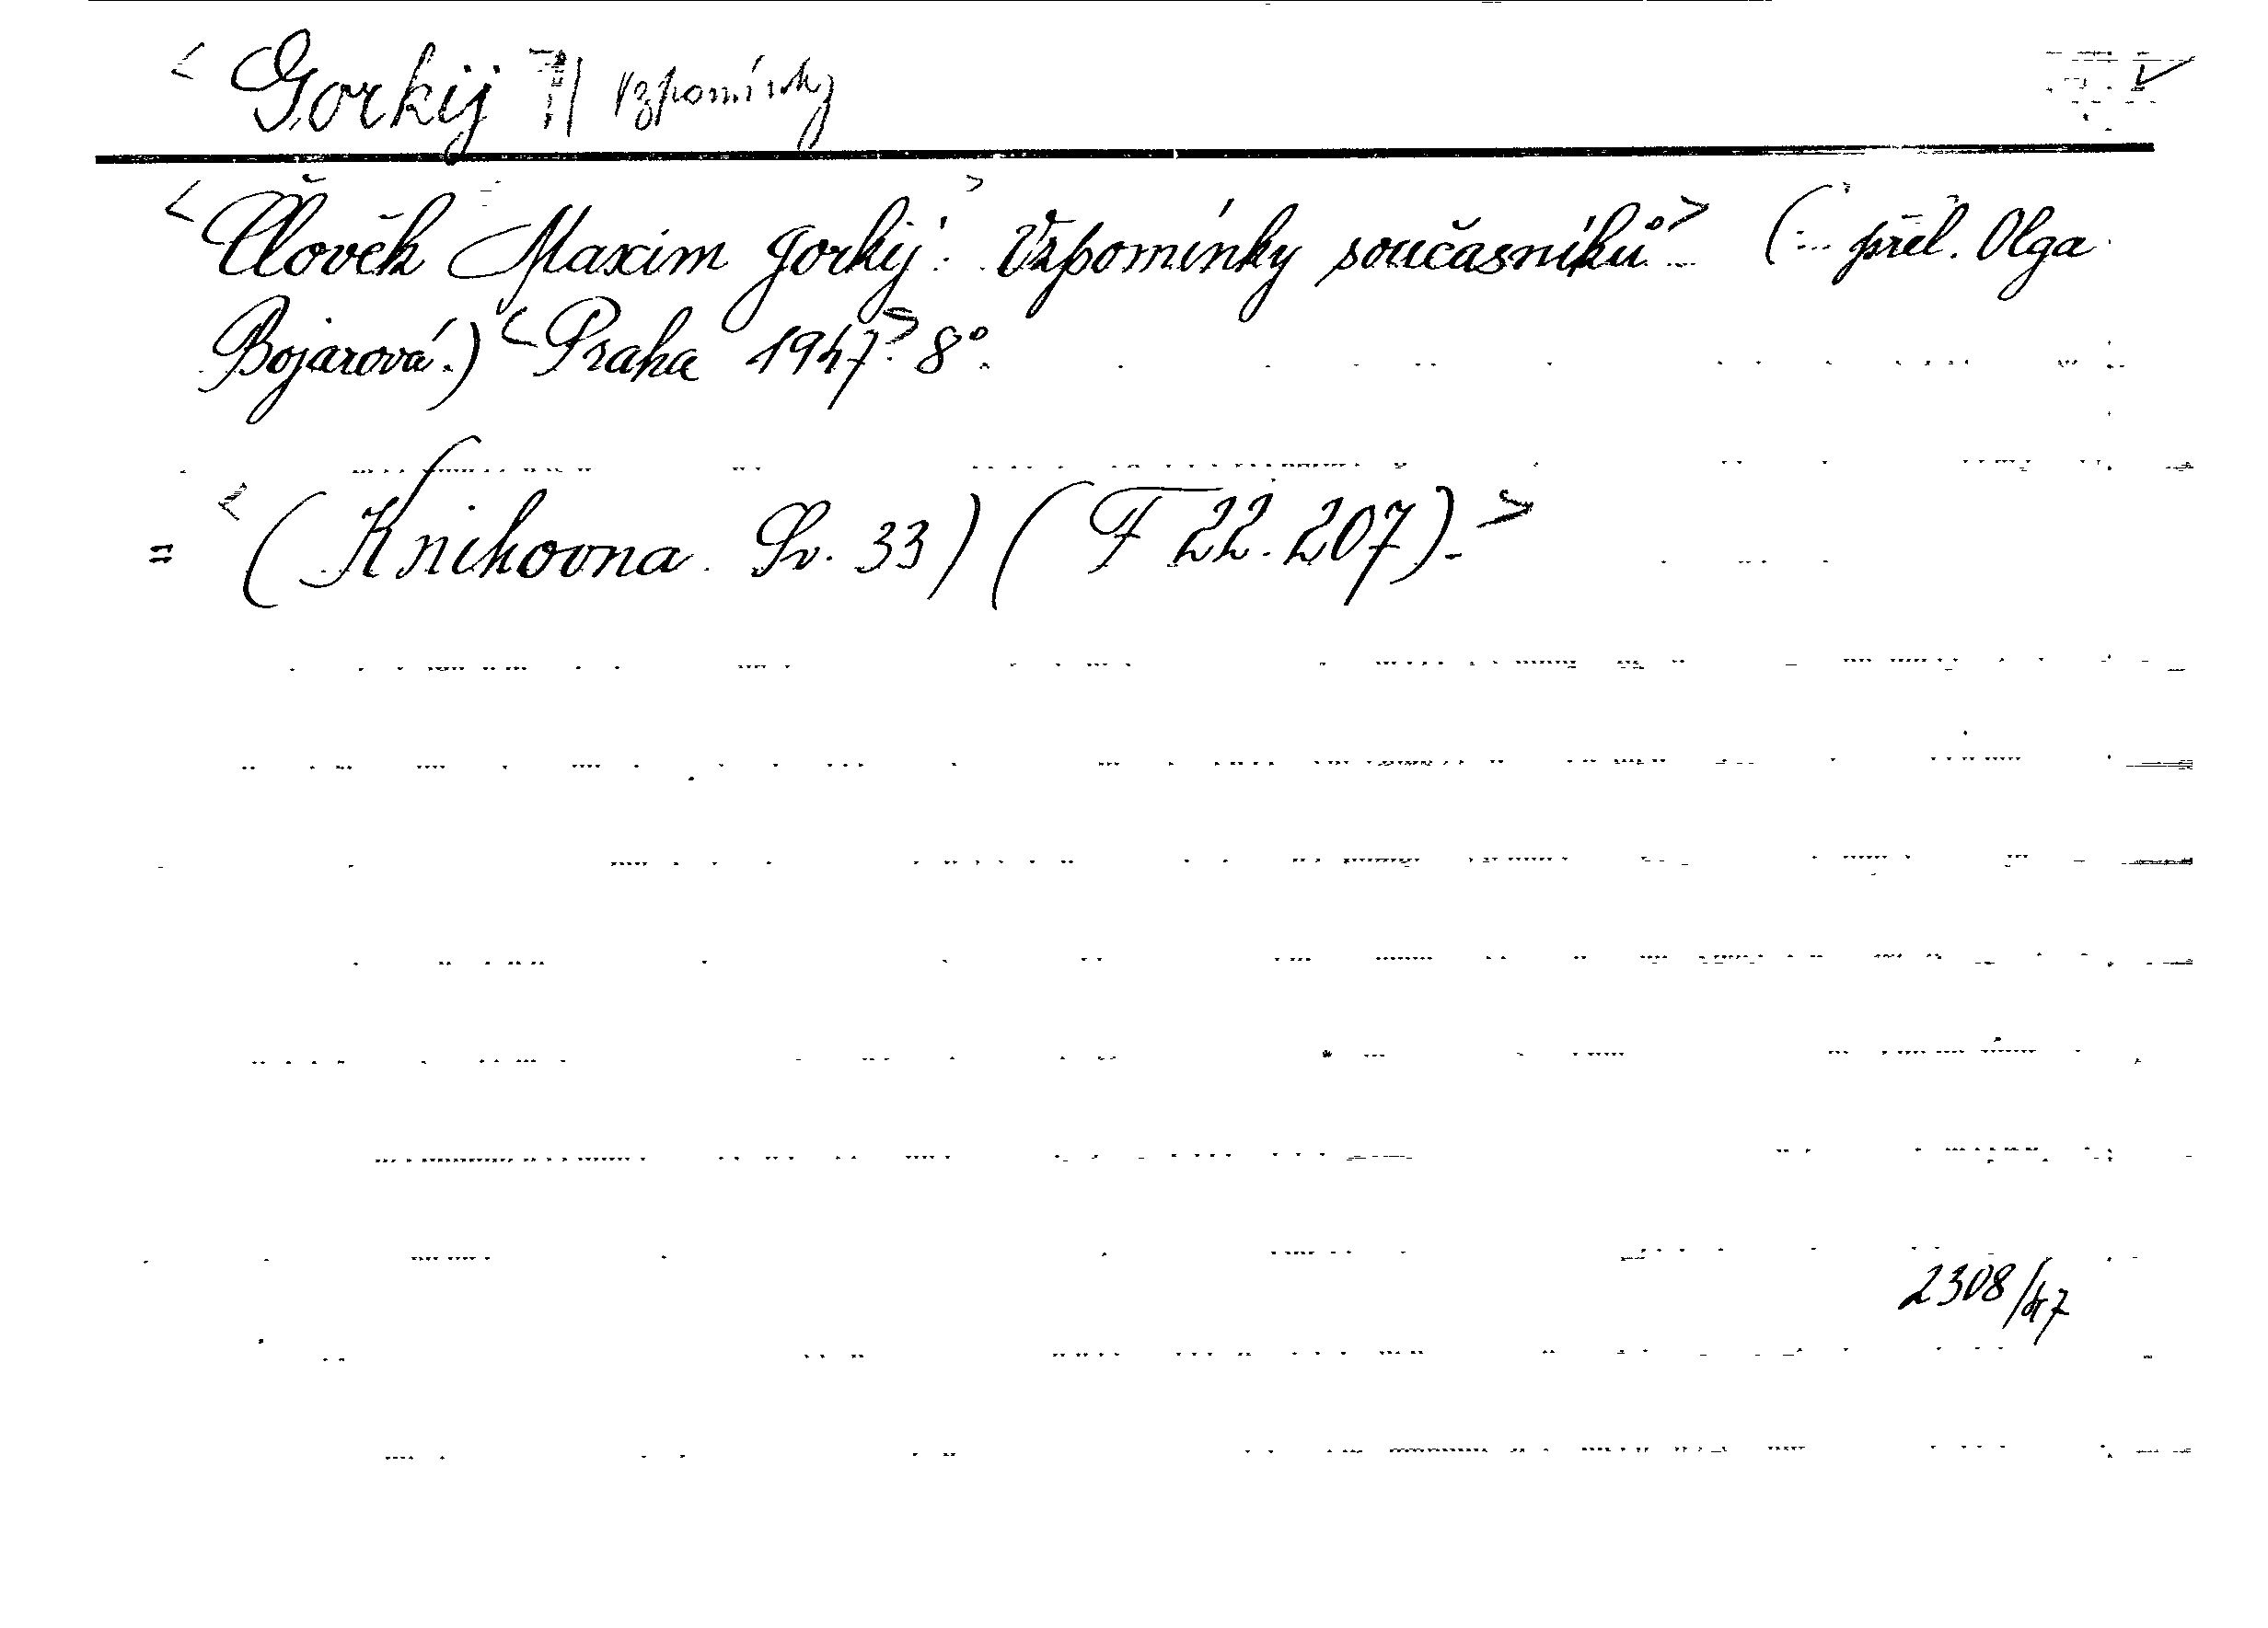 < Gorkij M vzpomínky
< Člověk Maxim Gorkij. > Vzpomínky současníků. > (... přel. Olga
Bojarová.) < Praha 1947. > 8°.
= < (Knihovna. Sv. 33) (F 22.207). - >
2308/47